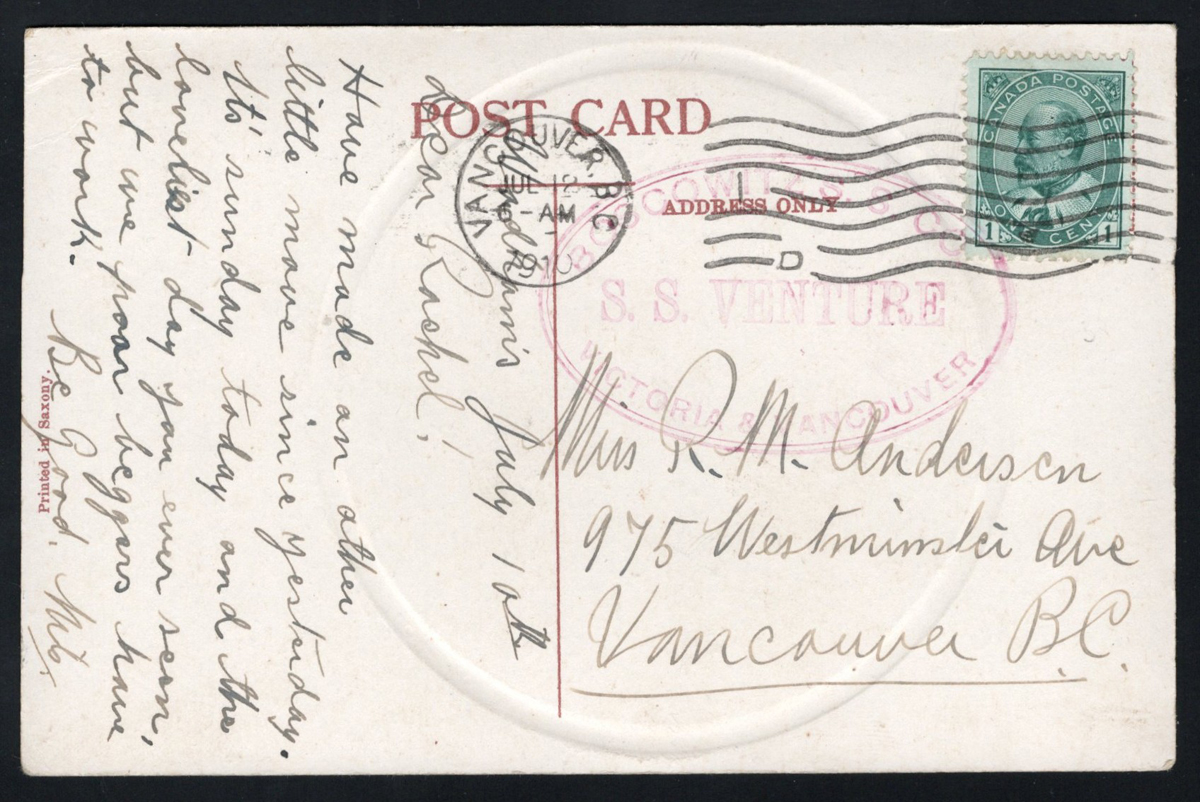 POST CARD
ADDRESS ONLY
CANADA POSTAGE
ONE CENT
1 1
VANCOUVER, B.C
JUL 12
6 - AM
1910
D
BOSCOWITZ S. S. CO.
S. S. VENTURE
VICTORIA & VANCOUVER
July 10th
Dear Rachel!
Have made an other
little move since yesterday.
It's sunday today and the
loveliest day you ever seen,
but we poor beggars have
to work.
Be Good.
Miss R. M. Andersen
975 Westminster Ave
Vancouver B.C.
Printed in Saxony.